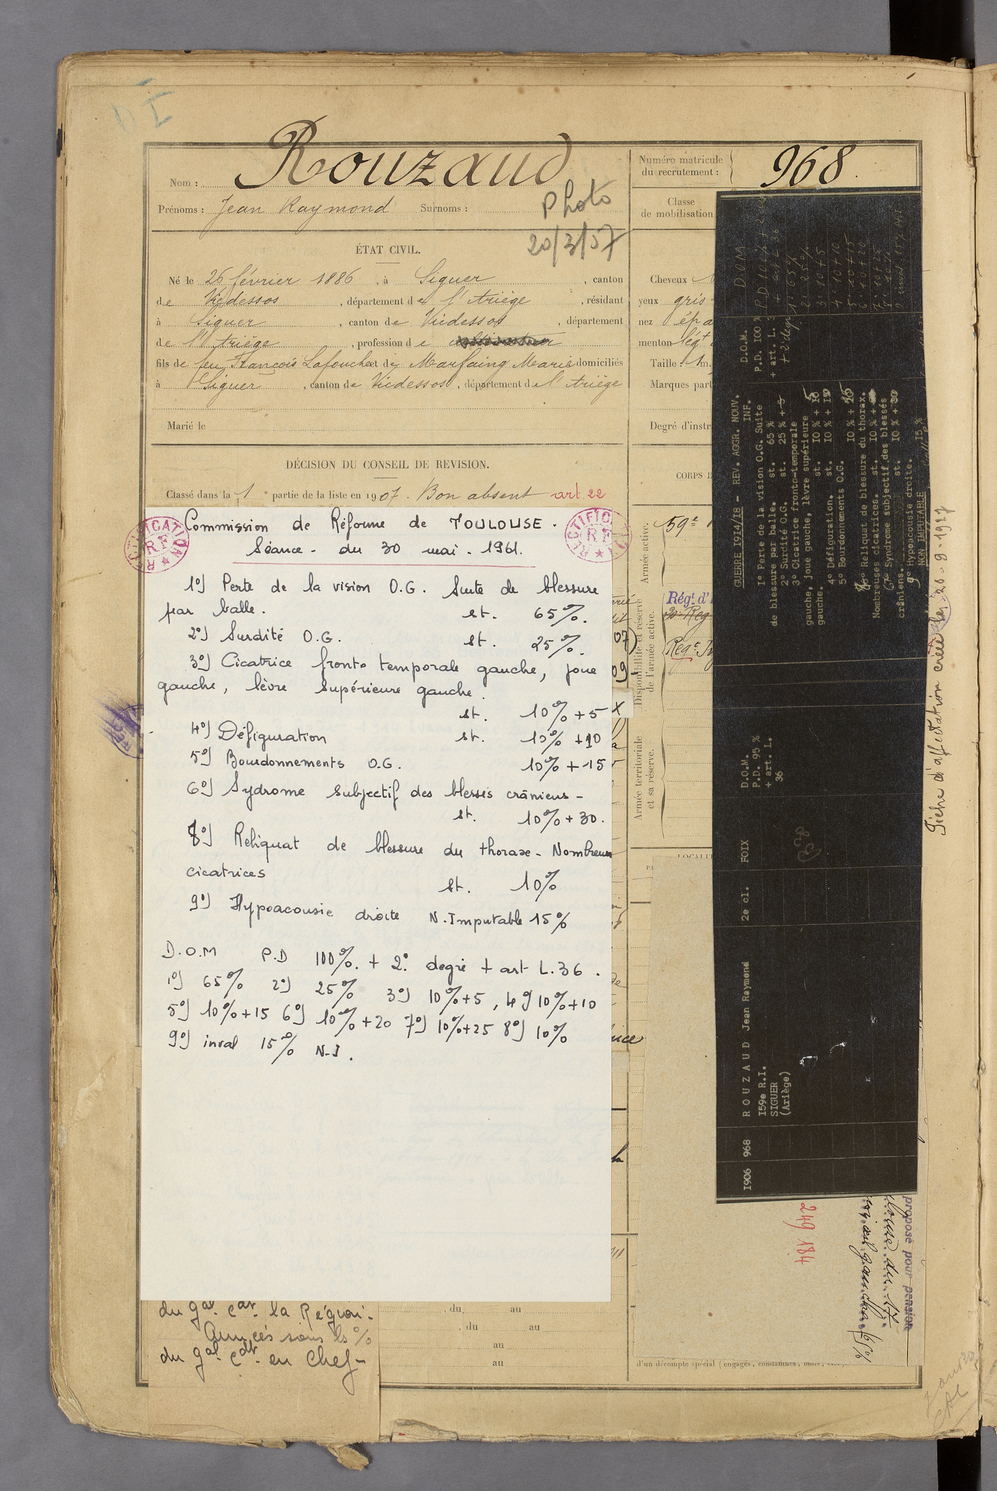 Nom : Rouzaud
Numéro matricule du recrutement : 968
Prénoms : Jean Raymond Surnoms :
Photo
20/3/57
Classe de mobilisation
ÉTAT CIVIL.
Né le 26 février 1886, à Siguer, canton
de Vicdessos, département de l'Ariège, résidant
à Siguer, canton de Vicdessos, département
de l'Ariège, profession de
fils de feu François Lafouchat et de Marfaing Marie domiciliés
à Siguer, canton de Vicdessos, département de l'Ariège
Marié le
Cheveux
yeux gris
nez épa
menton
Taille : 1m.
Marques part
Degré d'instr
CORPS D
DÉCISION DU CONSEIL DE REVISION.
Classé dans la 1e partie de la liste en 1907. Bon absent art 22
RECTIFICATION RF
RECTIFICATION RF
Commission de Réforme de TOULOUSE.
Séance - du 30 mai - 1961.
1°) Perte de la vision O.G. Suite de blessure
par balle. st. 65%.
2°) Surdité O.G. st. 25%.
3°) Cicatrice fronto temporale gauche, joue
gauche, lèvre supérieure gauche.
st. 10% + 5
4°) Défiguration st. 10% + 10
5°) Bourdonnements O.G. 10% + 15
6°) Sydrome subjectif des blessés crâniens -
st. 10% + 30.
8°) Reliquat de blessure du thorax - Nombreuses
cicatrices st. 10%
9°) Hypoacousie droite N.Imputable 15%
D.O.M P.D 100%. + 2° degré + art L.36.
1°) 65% 2°) 25% 3°) 10%+5, 4°) 10%+10
5°) 10%+15 6°) 10%+20 7°) 10%+25 8°) 10%
9°) inval 15% N.I.
du gal. Cdt. la Région.
du gal. Cdt. en Chef-
. du, au
. du au
au
au
d'un décompte spécial
Armée active.
59e
Disponibilité et réserve de l'armée active.
Régt. d'I
Armée territoriale et sa réserve.
1906 968 ROUZAUD Jean Raymond 2e cl. FOIX
159e R.I.
SIGUER
(Ariège)
D.O.M.
P.D. 95 %
+ art. L.
36
GUERRE 1914/18 - REV. AGGR. NOUV.
INF.
1° Perte de la vision O.G. Suite
de blessure par balle. st. 65 %
2° Surdité O.G. st. 25 % + 5
3° Cicatrice fronto-temporale
gauche, joue gauche, lèvre supérieure
gauche. st. 10 % +
4° Défiguration. st. 10 % +
5° Bourdonnements O.G.
10 % +
Reliquat de blessure du thorax.
Nombreuses cicatrices. st. 10 % +
Syndrome subjectif des blessés
crâniens. st. 10 % +
9° Hypoacousie droite. 15 %
NON IMPUTABLE
D.O.M.
P.D. 100 %
+ art. L. 3
Fiche d'affectation créée le 20-9-1927
249 184
proposé pour pension